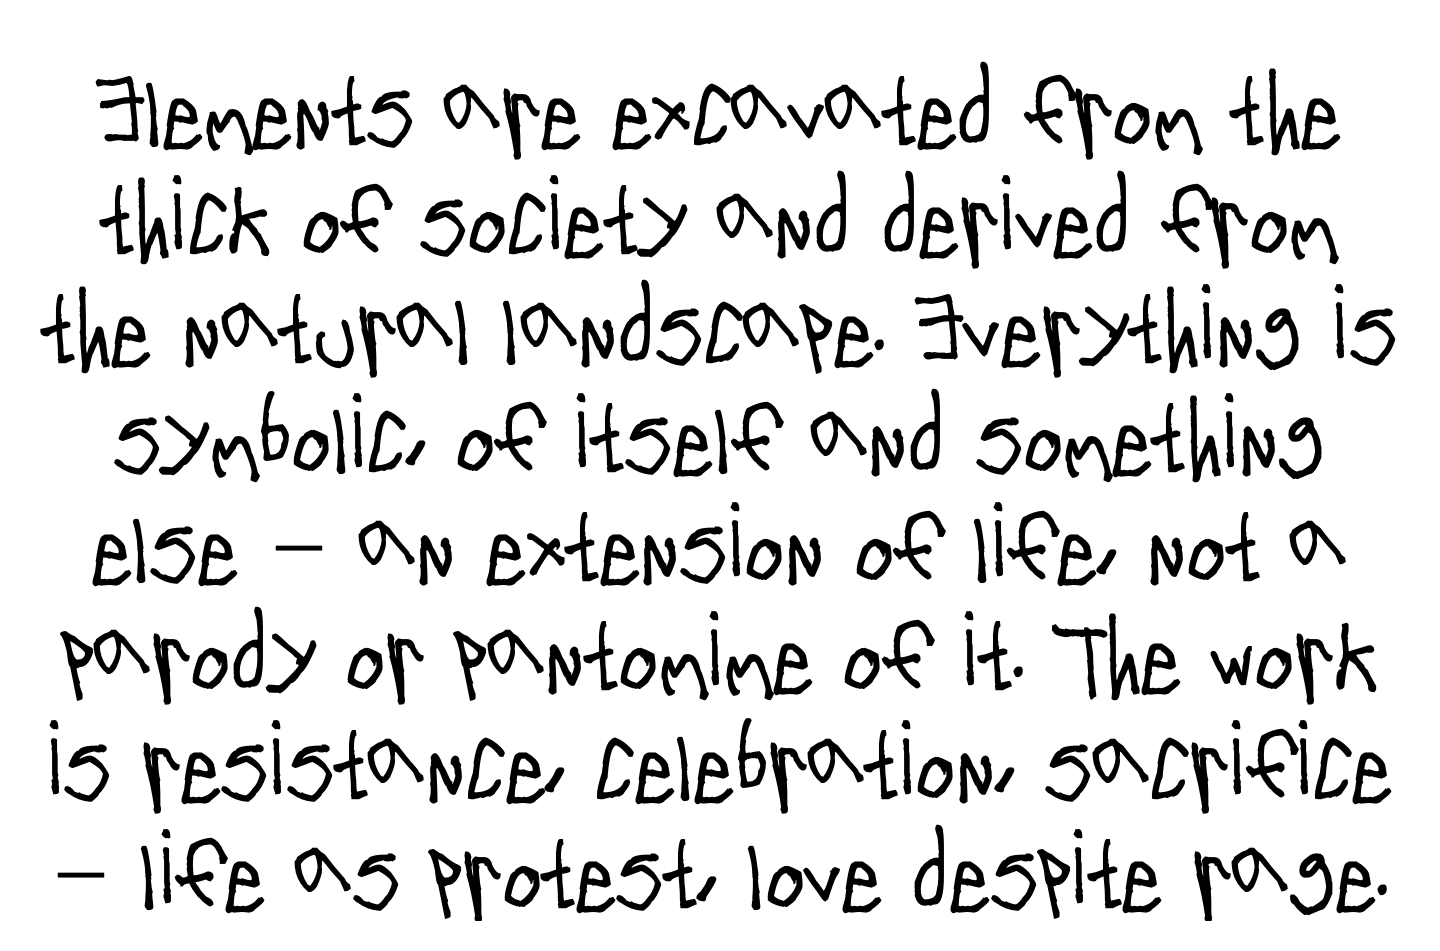 Elements are excavated from the
thick of society and derived from
the natural landscape. Everything is
symbolic, of itself and something
else – an extension of life, not a
parody or pantomime of it. The work
is resistance, celebration, sacrifice
– life as protest, love despite rage.